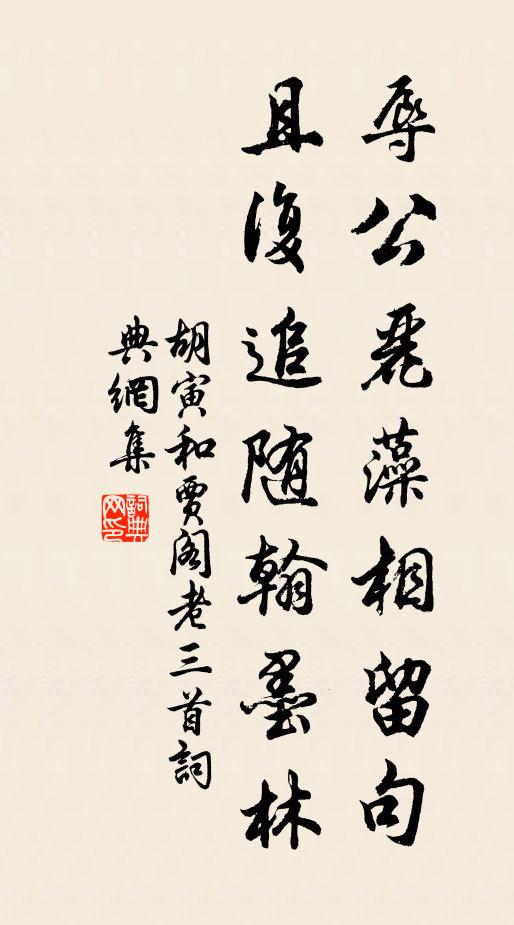 辱公麗藻相留句
且復追随翰墨林
胡寅和賈阁老三首詞
典網集
詞典网印